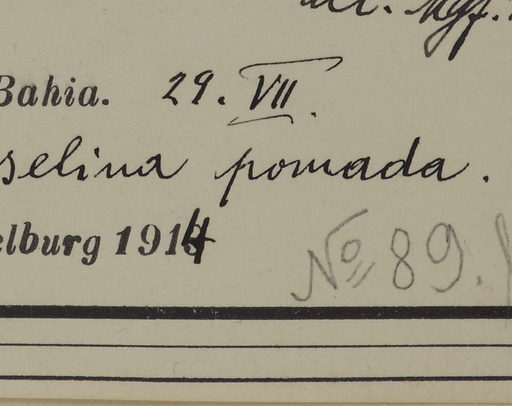 Bahia. 29. VII.
selina pomada.
elburg 1914
No 89.